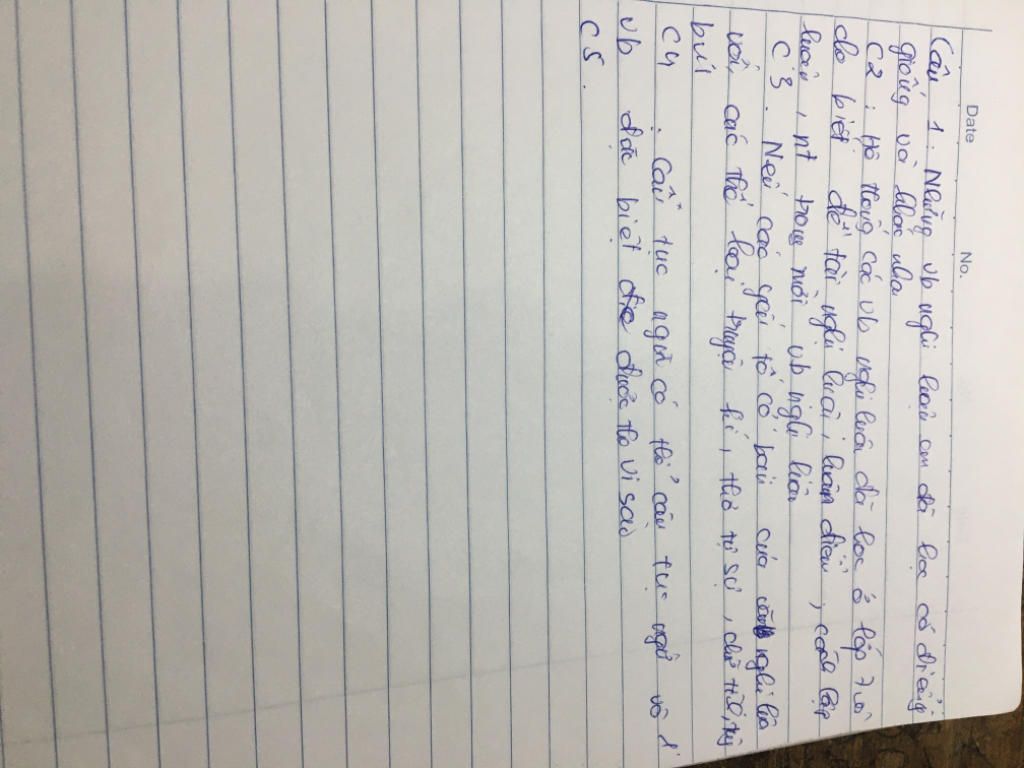 Date No.
Câu 1. Những vb nghị luận em đã học có điểm gì
giống và khác nha
C2: Hệ thống các vb nghị luận đã học ở lớp 7 và
cho biết đề tài nghị luận, luận điểm, cách lập
luận, nt trong mỗi vb nghị luận
C3. Nếu các yếu tố cơ bản của nghị luận
với các thể loại truyện kí, thơ tự sự, chữ tình, tùy
bút
C4. Câu tục ngữ có thể câu tục ngữ vô
vb đặc biệt được ko vì sao
C5.